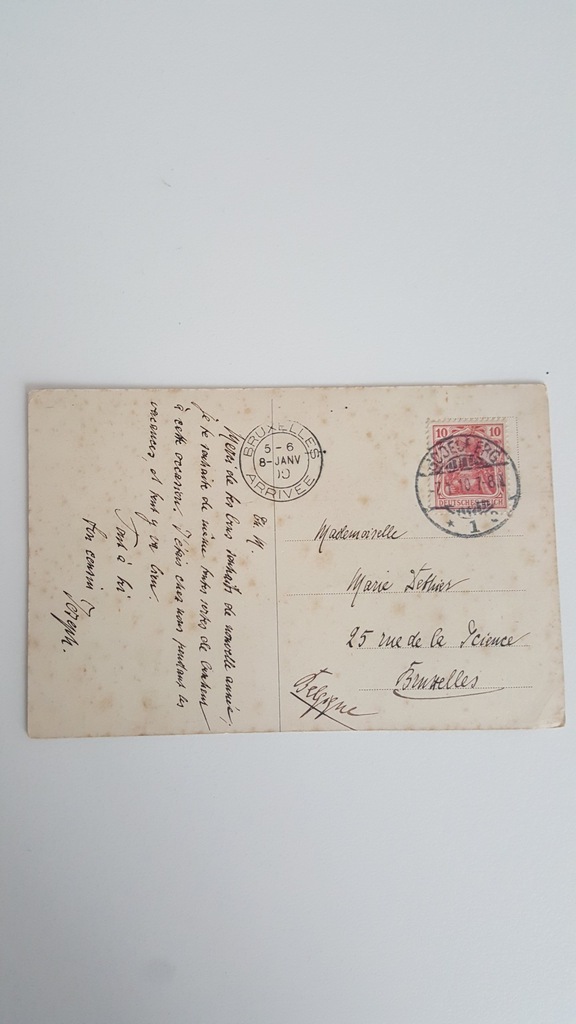 E. V.
Merci de tes bons souhaits de nouvelle année,
je te souhaite de même toutes sortes de bonheur
à cette occasion. J'étais chez nous pendant les
vacances et tout y va bien.
Tout à toi
Ton cousin
Joseph.
BRUXELLES
5-6
8-JANV
10
ARRIVÉE
10 10
DEUTSCHES REICH
GODESBERG
1
Mademoiselle
Marie Dethier
25 rue de la Science
Bruxelles
Belgique